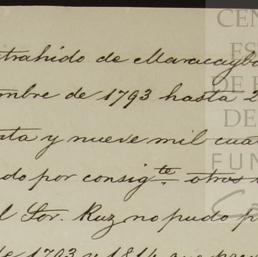 trahido de Maracaybo
mbre de 1793 hasta 2
nta y nueve mil cua
do por consig.te otros
l Sor. Ruz no pudo p
de 1793 y 1814 que
CEN
ES
DE
DE
FUN